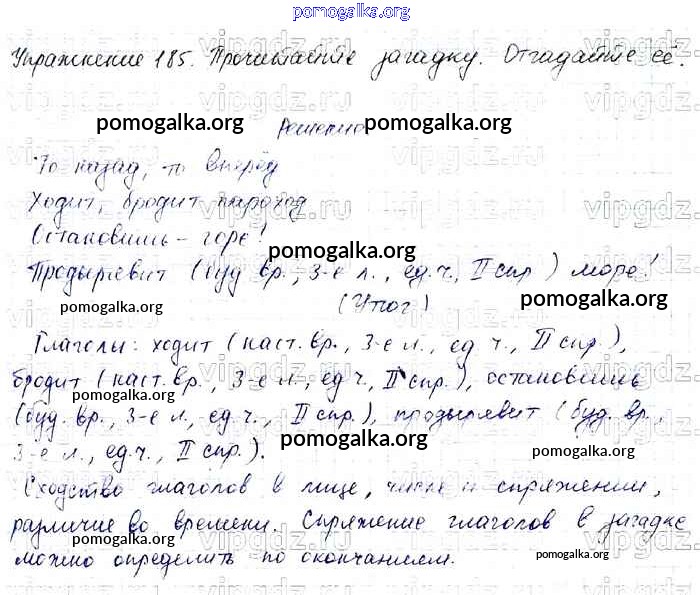 pomogalka.org
Упражнение 185. Прочитайте загадку. Отгадайте её.
pomogalka.org Решение pomogalka.org
То назад, то вперёд
Ходит, бродит пароход
Остановишь – горе!
pomogalka.org
Продырявит (буд. вр., 3-е л., ед.ч., II спр.) море!
pomogalka.org (Утюг) pomogalka.org
Глаголы: ходит (наст. вр., 3-е л., ед. ч., II спр.),
бродит (наст. вр., 3-е л., ед ч., II спр.), остановишь
pomogalka.org
(буд. вр., 3-е л., ед.ч., II спр.), продырявит (буд. вр.,
3-е л., ед.ч., II спр.).
pomogalka.org pomogalka.org
Сходство глаголов в лице, числе и спряжении,
различие во времени. Спряжение глаголов в загадке
pomogalka.org pomogalka.org
можно определить по окончаниям.
pomogalka.org
vipgdz.ru